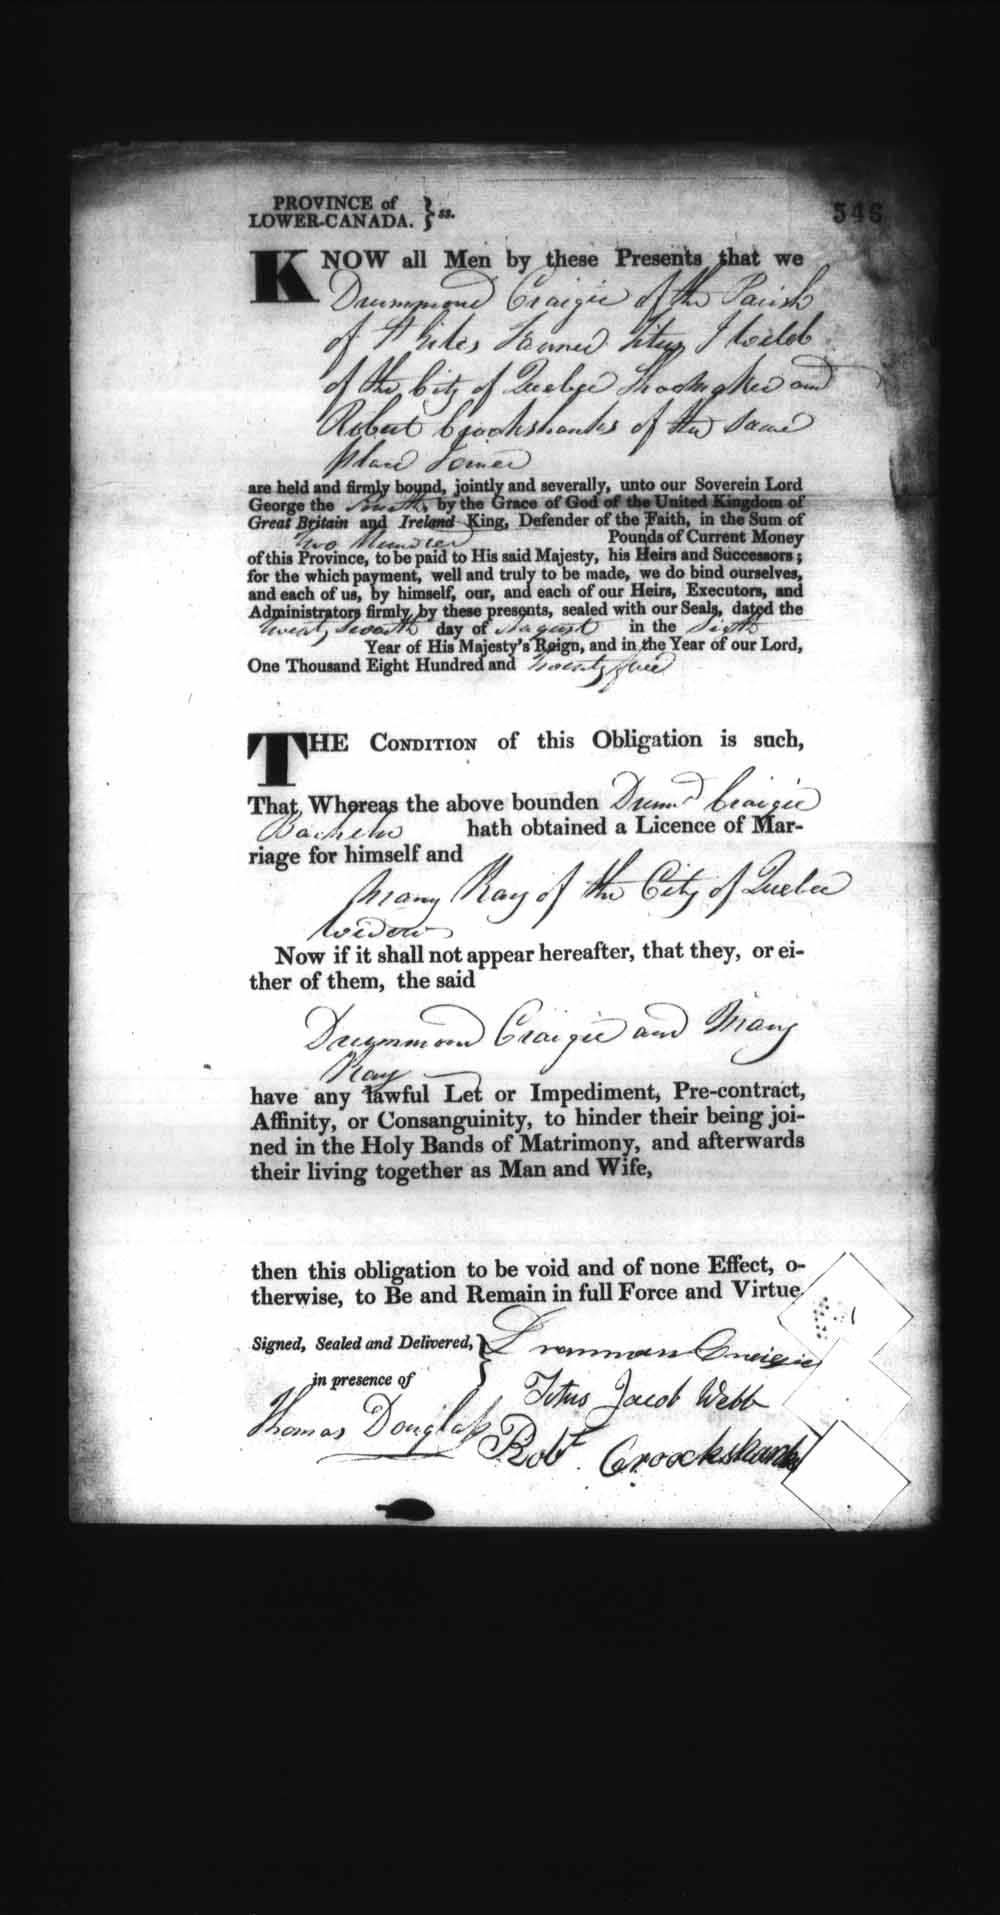 PROVINCE of
LOWER-CANADA. } ss.
546
KNOW all Men by these Presents that we
Drummond Craigie of the Parish
of St Giles Titus J Webb
of the City of Quebec Shoemaker and
Robert Crookshanks of the same
place Joiner
are held and firmly bound, jointly and severally, unto our Soverein Lord
George the Fourth by the Grace of God of the United Kingdom of
Great Britain and Ireland King, Defender of the Faith, in the Sum of
Two Hundred Pounds of Current Money
of this Province, to be paid to His said Majesty, his Heirs and Successors;
for the which payment, well and truly to be made, we do bind ourselves,
and each of us, by himself, our, and each of our Heirs, Executors, and
Administrators firmly by these presents, sealed with our Seals, dated the
day of August in the Sixth
Year of His Majesty's Reign, and in the Year of our Lord,
One Thousand Eight Hundred and twenty five
THE CONDITION of this Obligation is such,
That Whereas the above bounden Drumd Craigie
Bachelor hath obtained a Licence of Mar-
riage for himself and
Mary Ray of the City of Quebec
Widow
Now if it shall not appear hereafter, that they, or ei-
ther of them, the said
Drummond Craigie and Mary
Ray
have any lawful Let or Impediment, Pre-contract,
Affinity, or Consanguinity, to hinder their being joi-
ned in the Holy Bands of Matrimony, and afterwards
their living together as Man and Wife,
then this obligation to be void and of none Effect, o-
therwise, to Be and Remain in full Force and Virtue.
Signed, Sealed and Delivered, }
in presence of
Thomas Douglass
Drumman Creigie
Titus Jacob Webb
Robt Crookshanks